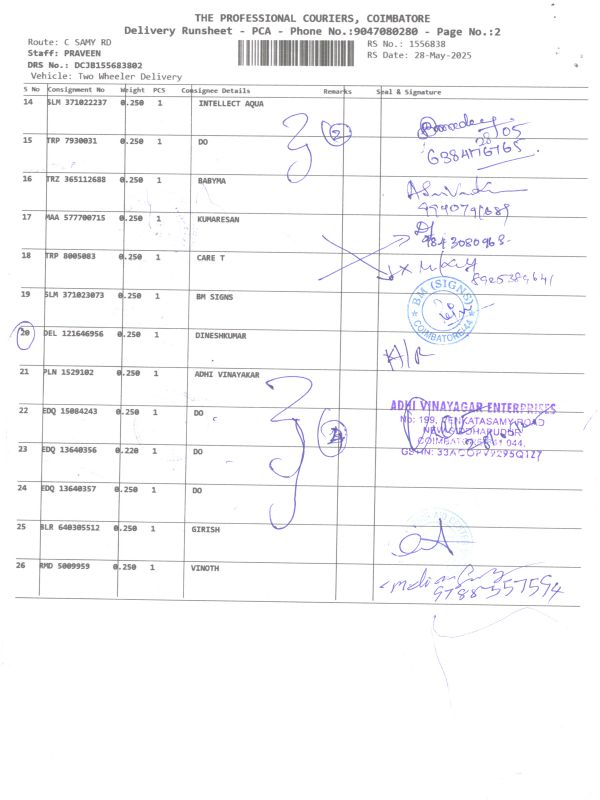 THE PROFESSIONAL COURIERS, COIMBATORE
Delivery Runsheet - PCA - Phone No.:9047080280 - Page No.:2
Route: C SAMY RD
RS No.: 1556838
Staff: PRAVEEN
RS Date: 28-May-2025
DRS No.: DCJB155683802
Vehicle: Two Wheeler Delivery
S No Consignment No Weight PCS Consignee Details Remarks Seal & Signature
14 SLM 371022237 0.250 1 INTELLECT AQUA
15 TRP 7930031 0.250 1 DO
6384176765
16 TRZ 365112688 0.250 1 BABYMA
17 MAA 577700715 0.250 1 KUMARESAN
9843080968
18 TRP 8005083 0.250 1 CARE T
8925389641
19 SLM 371023073 0.250 1 BM SIGNS
BM (SIGNS)
COIMBATORE-44
20 DEL 121646956 0.250 1 DINESHKUMAR
21 PLN 1529102 0.250 1 ADHI VINAYAKAR
ADHI VINAYAGAR ENTERPRISES
22 EDQ 15084243 0.250 1 DO
No: 199, VENKATASAMY ROAD
23 EDQ 13640356 0.220 1 DO
24 EDQ 13640357 0.250 1 DO
25 BLR 640305512 0.250 1 GIRISH
26 RMD 5009959 0.250 1 VINOTH
9788557594